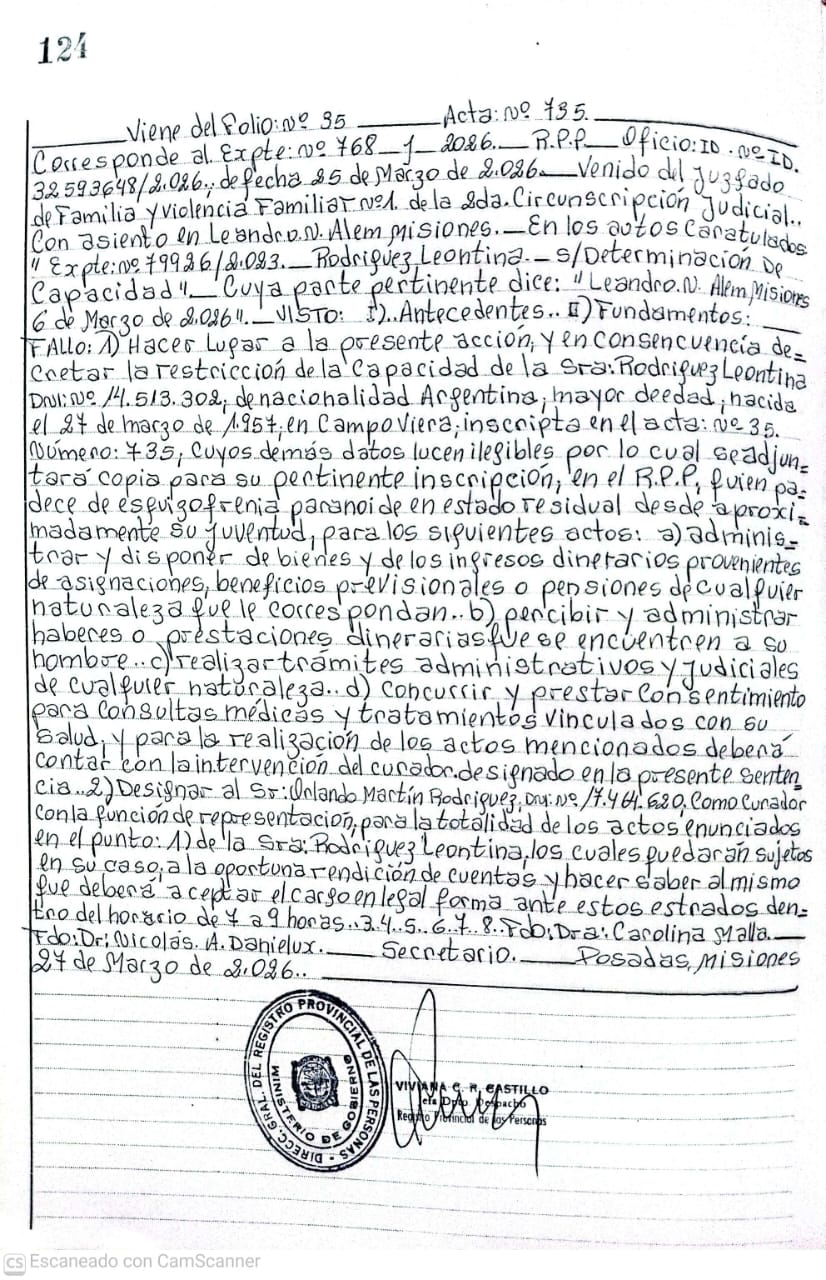 124
Viene del Folio: Nº 35 Acta: Nº 735.
Corresponde al Expte: Nº 768 - J - 2026. R.P.P. Oficio: ID. Nº ID.
32593648/2.026., de fecha 25 de Marzo de 2.026. Venido del Juzgado
de Familia y Violencia Familiar Nº1. de la 2da. Circunscripción Judicial..
Con asiento en Leandro.N. Alem Misiones. En los autos Caratulados
"Expte: Nº 79926/2.023. Rodriguez Leontina. s/Determinación De
Capacidad". Cuya parte pertinente dice: "Leandro.N. Alem, Misiones
6 de Marzo de 2.026". VISTO: I).. Antecedentes.. II) Fundamentos:
FALLO: 1) Hacer Lugar a la presente acción, y en consencuencia de=
Cretar la restriccion de la Capacidad de la Sra: Rodriguez Leontina
DNI: Nº 14.513.302, de nacionalidad Argentina, mayor de edad, nacida
el 27 de marzo de 1.957, en Campo Viera, inscripta en el acta: Nº 35.
Número: 735, Cuyos demás datos lucen ilegibles por lo cual se adjun=
tará copia para su pertinente inscripción, en el R.P.P, quien pa=
dece de esquizofrenia paranoide en estado residual desde aproxi=
madamente su juventud, para los siguientes actos: a) adminis=
trar y disponer de bienes y de los ingresos dinerarios provenientes
de asignaciones, beneficios previsionales o pensiones de cualquier
naturaleza que le correspondan.. b) percibir y administrar
haberes o prestaciones dinerarias que se encuentren a su
nombre.. c) realizar trámites administrativos y judiciales
de cualquier naturaleza.. d) Concurrir y prestar Consentimiento
para Consultas médicas y tratamientos vinculados con su
Salud, y para la realización de los actos mencionados deberá
contar con la intervención del curador designado en la presente senten
cia.. 2) Designar al Sr: Orlando Martín Rodriguez, DNI: Nº 17.461.620, Como Curador
con la función de representación, para la totalidad de los actos enunciados
en el punto: 1) de la Sra: Rodríguez Leontina, los cuales quedarán sujetos
en su caso, a la oportuna rendición de cuentas y hacer saber al mismo
que deberá aceptar el cargo en legal forma ante estos estrados den=
tro del horario de 7 a 9 horas.. 3.. 4.. 5.. 6.. 7.. 8.. Fdo: Dra: Carolina Malla.
Fdo: Dr: Nicolás. A. Danielux. Secretario. Posadas, Misiones
27 de Marzo de 2.026..
DIRECC. GRAL. DEL REGISTRO PROVINCIAL DE LAS PERSONAS
MINISTERIO DE GOBIERNO
VIVIANA C. R. CASTILLO
Jefa Dpto Despacho
Registro Provincial de las Personas
CS Escaneado con CamScanner